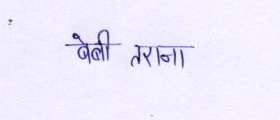 बेबी तराना